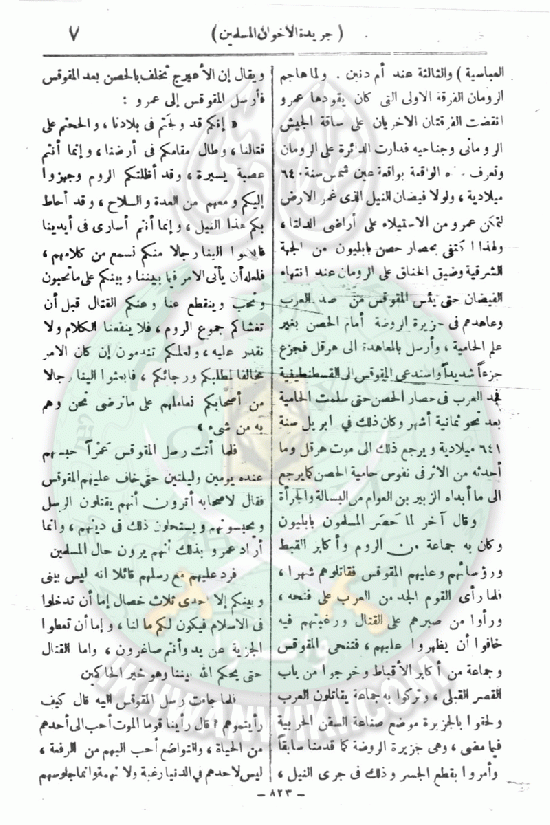 ( جريدة الأخوان المسلمين )
٧
العباسية ) والثالثة عند أم دنين . ولما هاجم
الرومان الفرقة الاولى التى كان يقودها عمرو
انقضت الفرقتان الاخريان على ساقة الجيش
الرومانى وجناحيه فدارت الدائرة على الرومان
وتعرف الواقعة بواقعة عين شمس سنة ٦٤٠
ميلادية ، ولولا فيضان النيل الذى غمر الارض
لتمكن عمرو من الاستيلاء على أراضى الدلتا ،
ولهذا اكتفى بحصار حصن بابليون من الجهة
الشرقية وضيق الخناق على الرومان عند انتهاء
الفيضان حتى يئس المقوقس من صد العرب
وعاهدهم فى جزيرة الروضة أمام الحصن بغير
علم الحامية ، وأرسل بالمعاهدة الى هرقل فجزع
جزعاً شديداً واستدعى المقوقس الى القسطنطينية
فجد العرب فى حصار الحصن حتى سلمت الحامية
بعد نحو ثمانية أشهر وكان ذلك فى ابريل سنة
٦٤١ ميلادية ويرجع ذلك الى موت هرقل وما
أحدثه من الاثر فى نفوس حامية الحصن كما يرجع
الى ما أبداه الزبير بن العوام من البسالة والجرأة
وقال آخر لما حصر المسلمون بابليون
وكان به جماعة من الروم وأكابر القبط
ورؤسائهم وعليهم المقوقس فقاتلوهم شهرا ،
فلما رأى القوم الجد من العرب على فتحه ،
ورأوا من صبرهم على القتال ورغبتهم فيه
خافوا أن يظهروا عليهم ، فتنحى المقوقس
وجماعة من أكابر الأقباط وخرجوا من باب
القصر القبلى ، وتركوا به جماعة يقاتلون العرب
ولحقوا بالجزيرة موضع صناعة السفن الحربية
فيما مضى ، وهى جزيرة الروضة كما قدمنا سابقا
وأمروا بقطع الجسر وذلك فى جرى النيل ،
ويقال إن الأعيرج تخلف بالحصن بعد المقوقس
فأرسل المقوقس إلى عمرو :
« إنكم قد ولجتم فى بلادنا ، والححتم على
قتالنا ، وطال مقامكم فى أرضنا ، وإنما أنتم
عصبة يسيرة ، وقد أظلتكم الروم وجهزوا
إليكم ومعهم من العدة والسلاح ، وقد أحاط
بكم هذا النيل ، وإنما أنتم أسارى فى أيدينا
فابعثوا الينا رجالا منكم نسمع من كلامهم ،
فلعله أن يأتى الامر فيما بيننا وبينكم على ما تحبون
ونحب وينقطع عنا وعنكم القتال قبل أن
تغشاكم جموع الروم ، فلا ينفعنا الكلام ولا
نقدر عليه ، ولعلكم تندمون إن كان الامر
مخالفا لمطلبكم ورجائكم ، فابعثوا الينا رجالا
من أصحابكم نعاملهم على ما نرضى نحن وهم
به من شىء »
فلما أتت رسل المقوقس عمراً حبسهم
عنده يومين وليلتين حتى خاف عليهم المقوقس
فقال لاصحابه أترون أنهم يقتلون الرسل
ويحبسونهم ويستحلون ذلك فى دينهم ، وانما
أراد عمرو بذلك أنهم يرون حال المسلمين
فرد عليهم مع رسلهم قائلا انه ليس بينى
وبينكم إلا إحدى ثلاث خصال إما أن تدخلوا
فى الاسلام فيكون لكم ما لنا ، وإما أن تعطوا
الجزية عن يد وأنتم صاغرون ، واما القتال
حتى يحكم الله بيننا وهو خير الحاكمين
فلما جاءت رسل المقوقس اليه قال كيف
رأيتموهم ؟ قال رأينا قوما الموت أحب الى أحدهم
من الحياة ، والتواضع أحب اليهم من الرفعة ،
ليس لاحدهم فى الدنيا رغبة ولا نهمة وانما جلوسهم
— ٨٢٣ —